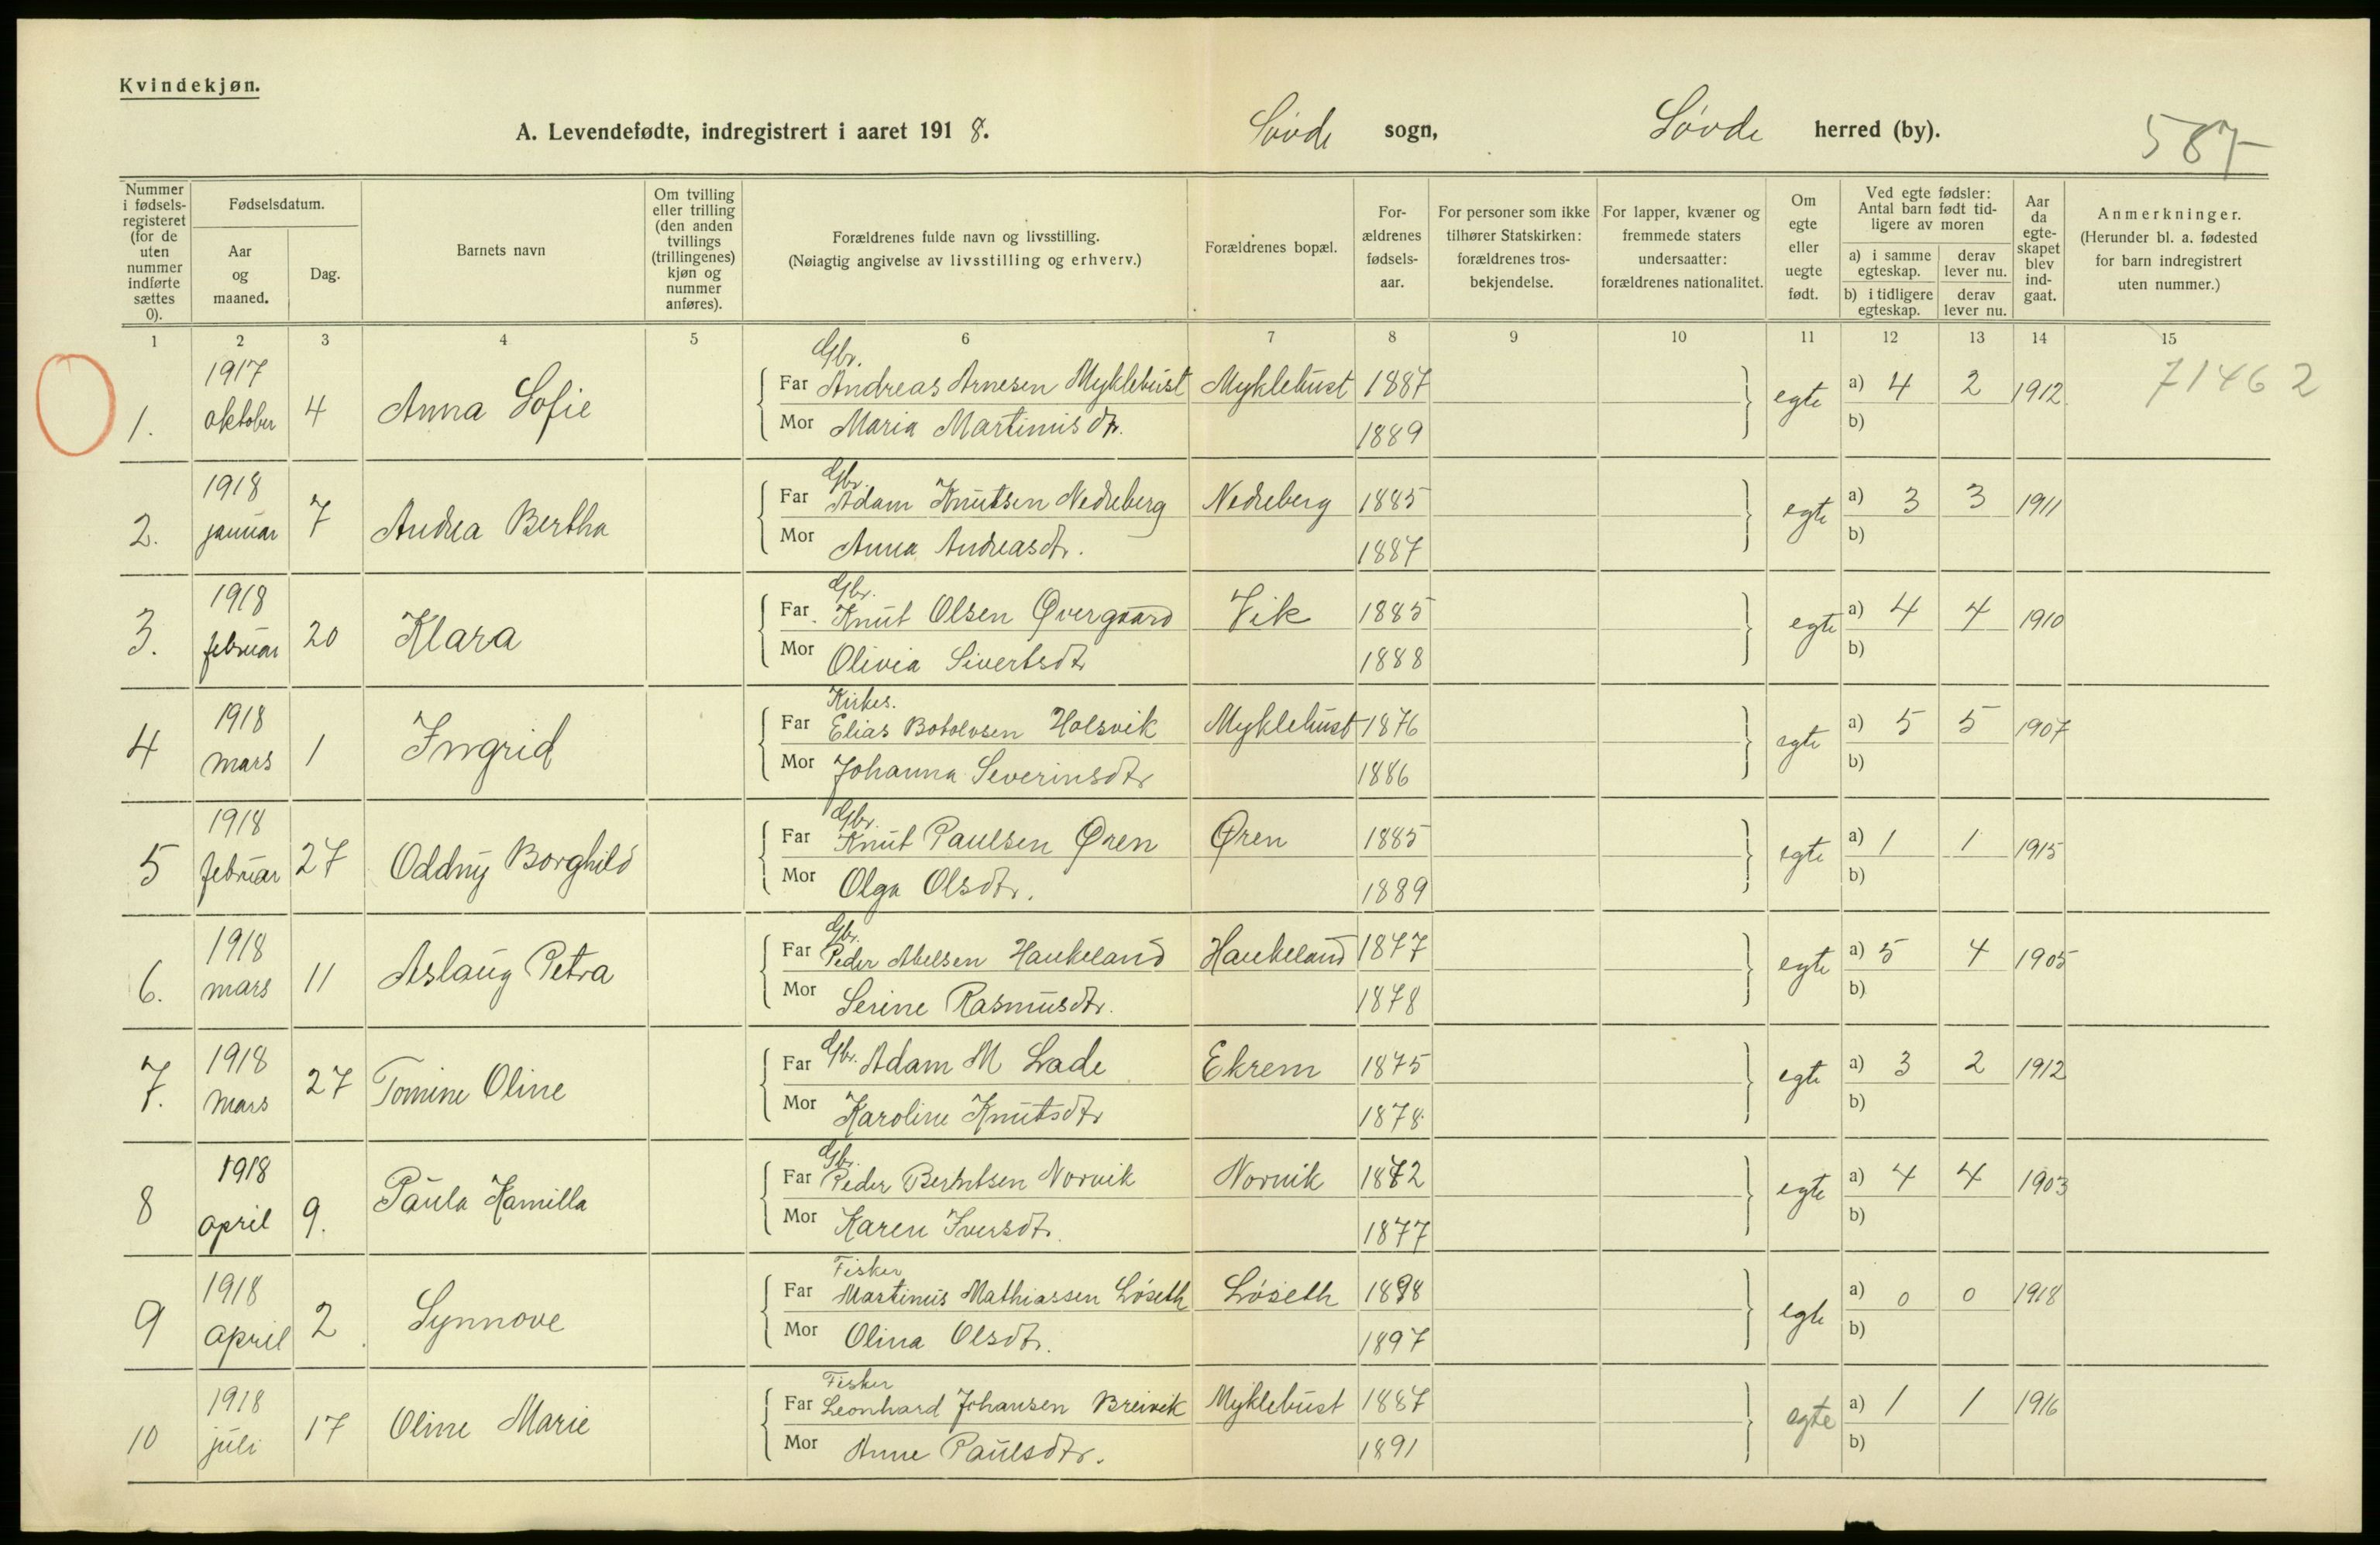 Kvindekjøn.
A. Levendefødte, indregistrert i aaret 1918. Søvde sogn, Søvde herred (by). 587
Nummer i fødsels-registeret (for de uten nummer indførte sættes 0).
Fødselsdatum.
Aar og maaned.
Dag.
Barnets navn
Om tvilling eller trilling (den anden tvillings (trillingenes) kjøn og nummer anføres).
Forældrenes fulde navn og livsstilling.
(Nøiagtig angivelse av livsstilling og erhverv.)
Forældrenes bopæl.
For-ældrenes fødsels-aar.
For personer som ikke tilhører Statskirken: forældrenes tros-bekjendelse.
For lapper, kvæner og fremmede staters undersaatter: forældrenes nationalitet.
Om egte eller uegte født.
Ved egte fødsler: Antal barn født tid-ligere av moren
a) i samme egteskap. derav lever nu.
b) i tidligere egteskap. derav lever nu.
Aar da egte-skapet blev ind-gaat.
Anmerkninger.
(Herunder bl. a. fødested for barn indregistrert uten nummer.)
1 2 3 4 5 6 7 8 9 10 11 12 13 14 15
1. 1917 oktober 4 Anna Sofie
Gbr.
Far Andreas Arnesen Myklebust Myklebust 1887 egte a) 4 2 1912 71462
Mor Maria Martinusdtr. 1889 b)
2. 1918 januar 7 Andrea Bertha
Gbr.
Far Adam Knutsen Nedreberg Nedreberg 1885 egte a) 3 3 1911
Mor Anna Andreasdtr. 1887 b)
3. 1918 februar 20 Klara
Gbr.
Far Knut Olsen Øvergaard Vik 1885 egte a) 4 4 1910
Mor Olivia Sivertsdtr 1888 b)
4 1918 mars 1 Ingrid
Kirkes.
Far Elias Botolvsen Holsvik Myklebust 1876 egte a) 5 5 1907
Mor Johanna Severinsdtr 1886 b)
5 1918 februar 27 Oddny Borghild
Gbr.
Far Knut Paulsen Øren Øren 1885 egte a) 1 1 1915
Mor Olga Olsdtr. 1889 b)
6. 1918 mars 11 Aslaug Petra
Gbr.
Far Peder Abelsen Haukeland Haukeland 1877 egte a) 5 4 1905
Mor Serine Rasmusdtr. 1878 b)
7. 1918 mars 27 Tomine Oline
Far Gbr. Adam M Lade Ekrem 1875 egte a) 3 2 1912
Mor Karoline Knutsdtr 1878 b)
8 1918 april 9. Paula Kamilla
Gbr.
Far Peder Berntsen Norvik Norvik 1872 egte a) 4 4 1903
Mor Karen Iversdtr. 1877 b)
9 1918 april 2 Synnove
Fisker
Far Martinus Mathiassen Løseth Løseth 1898 egte a) 0 0 1918
Mor Olina Olsdtr. 1897 b)
10 1918 juli 17 Oline Marie
Fisker
Far Leonhard Johansen Breivik Myklebust 1887 egte a) 1 1 1916
Mor Anne Paulsdtr. 1891 b)